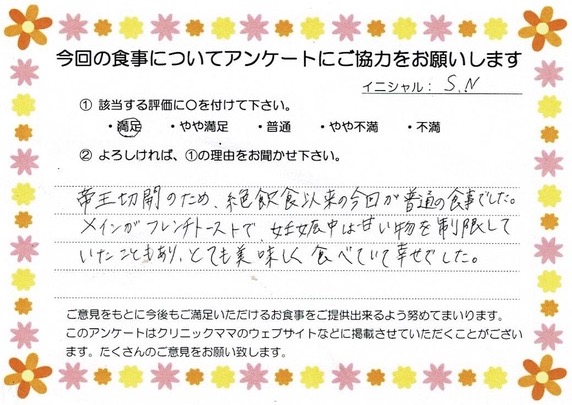 今回の食事についてアンケートにご協力をお願いします
イニシャル： S.N
① 該当する評価に〇を付けて下さい。
・満足 ・やや満足 ・普通 ・やや不満 ・不満
② よろしければ、①の理由をお聞かせ下さい。
帝王切開のため、絶飲食以来の今回が普通の食事でした。
メインがフレンチトーストで、妊娠中は甘い物を制限して
いたこともあり、とても美味しく食べていて幸せでした。
ご意見をもとに今後もご満足いただけるお食事をご提供出来るよう努めてまいります。
このアンケートはクリニックママのウェブサイトなどに掲載させていただくことがござい
ます。たくさんのご意見をお願い致します。